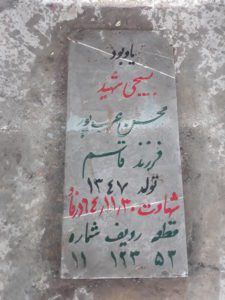 یادبود
بسیجی شهید
محسن عرب پور
فرزند قاسم
تولد ۱۳۴۷
شهادت ۶۴٫۱۱٫۳۰
قطعه ردیف شماره
۵۳ ۱۲۳ ۱۱